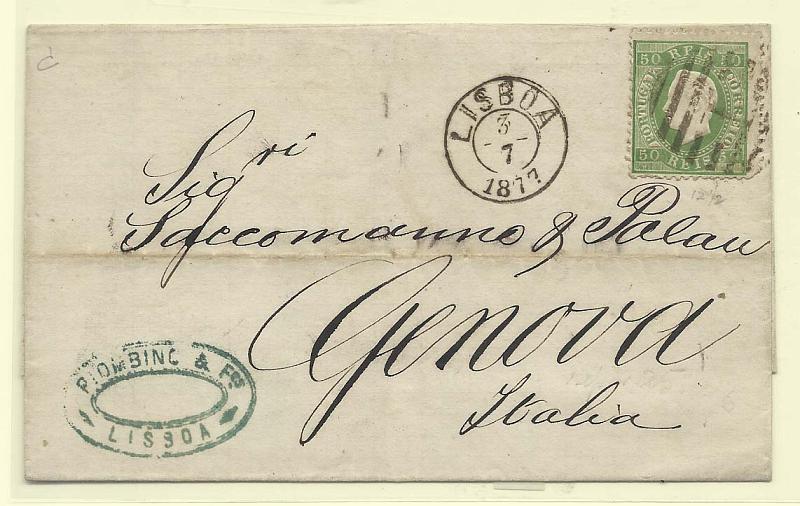 50 REIS 50
PORTUGAL
CORREIO
50 REIS 50
LISBOA
3
7
1877
12½
Sig ri
Saccomanno & Palau
Genova
Italia
PIOMBINO & Fos
LISBOA